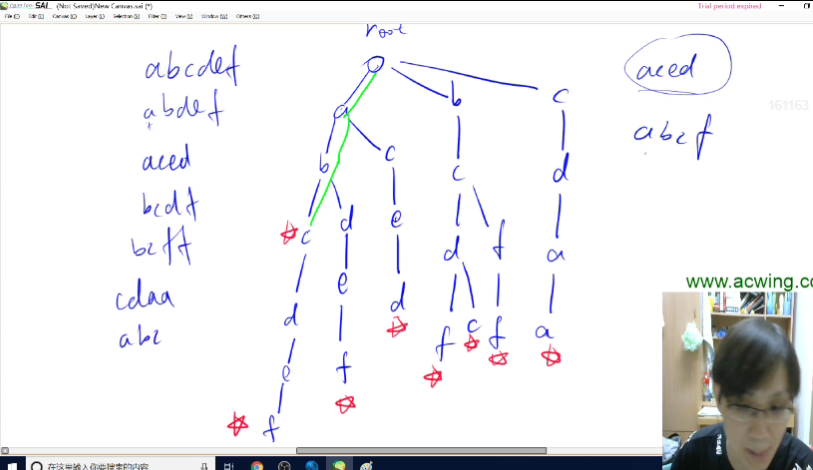 SAI (Not Saved)New Canvas.sai (*)
Trial period expired
File(F) Edit(E) Canvas(C) Layer(L) Selection(S) Filter(T) View(V) Window(W) Others(O)
root
abcdef
abdef
aced
bcdf
bcff
cdaa
abc
aced
abcf
161163
a b c
b c c d
c d e d f a
d e d d c f a
e f f
f
www.acwing.co
在这里输入你要搜索的内容